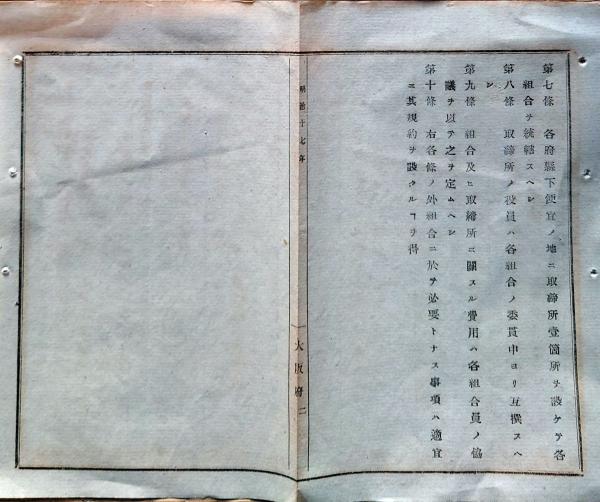 第七條 各府縣下便宜ノ地ニ取締所壹箇所ヲ設ケテ各
組合ヲ統轄スヘシ
第八條 取締所ノ役員ハ各組合ノ委員中ヨリ互撰スヘ
シ
第九條 組合及ヒ取締所ニ關スル費用ハ各組合員ノ協
議ヲ以テ之ヲ定ムヘシ
第十條 右各條ノ外組合ニ於テ必要トナス事項ハ適宜
ニ其規約ヲ設クルヿヲ得
明治十七年
大阪府 二